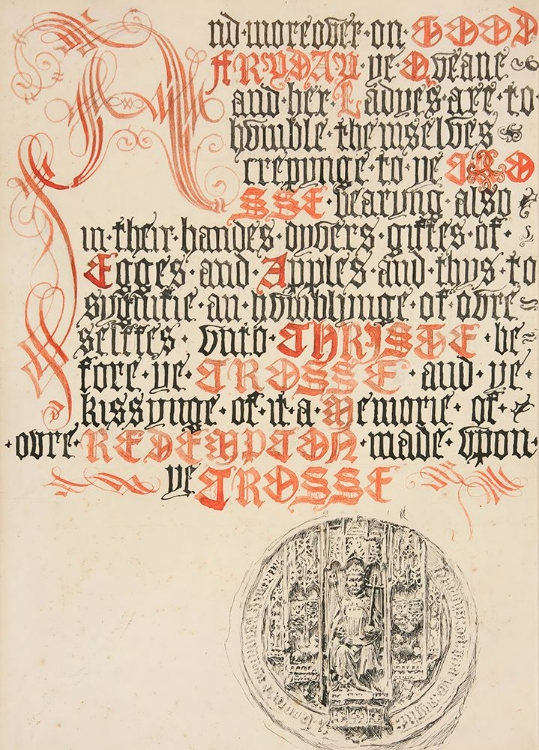 And·moreover·on·GOOD
FRYDAY ye Qveane
and·her·Ladyes·are·to·
hvmble·themselves
crepynge·to·ye CRO
SSE·bearyng·also
in·their·handes·dyvers·giftes·of·
Egges·and·Apples·and·thvs·to
sygnifie·an·hvmblynge·of·ovre
selffes·vnto·CHRISTE·be
fore·ye·CROSSE·and·ye·
kissynge·of·it·a·Memorie·of·
·ovre·REDEMPTON·made·vpon·
ye CROSSE